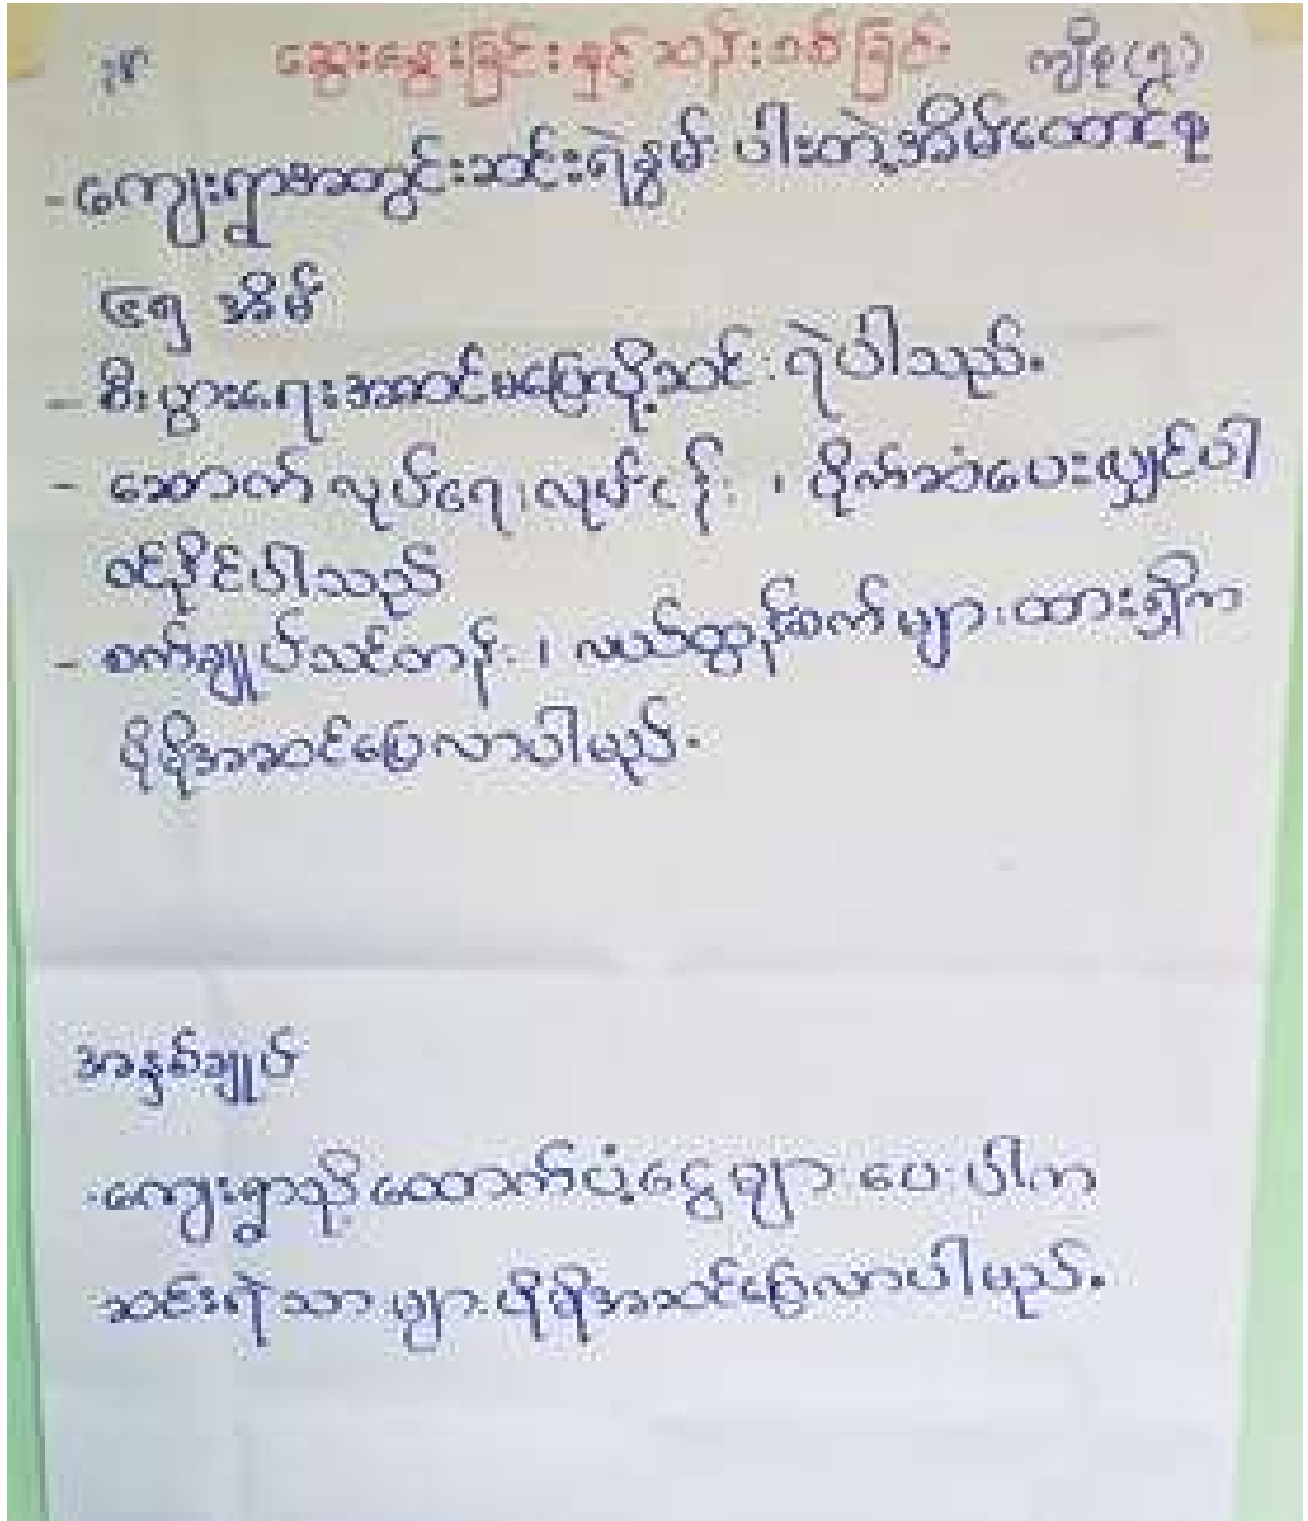 ဆွေးနွေးခြင်းနှင့် ဆန်းစစ်ခြင်း အုပ်စု(၅)
- ကျေးရွာအတွင်းဆင်းရဲနွမ်းပါးတဲ့အိမ်ထောင်စု
အိမ်
- စီးပွားရေးအဆင်မပြေလို့ဆင်းရဲပါသည်။
- ဆောက်လုပ်ရေးလုပ်ငန်း၊ စိုက်ဆံပေးလျှင်ပါ
ဝင်နိုင်ပါသည်
- စက်ချုပ်သင်တန်း၊ လယ်ထွန်စက်များထားရှိက
ပိုမိုအဆင်ပြေလာပါမည်။
အနှစ်ချုပ်
- ကျေးရွာသို့ထောက်ပံ့ငွေများပေးပါက
ဆင်းရဲသားများပိုမိုအဆင်ပြေလာပါမည်။